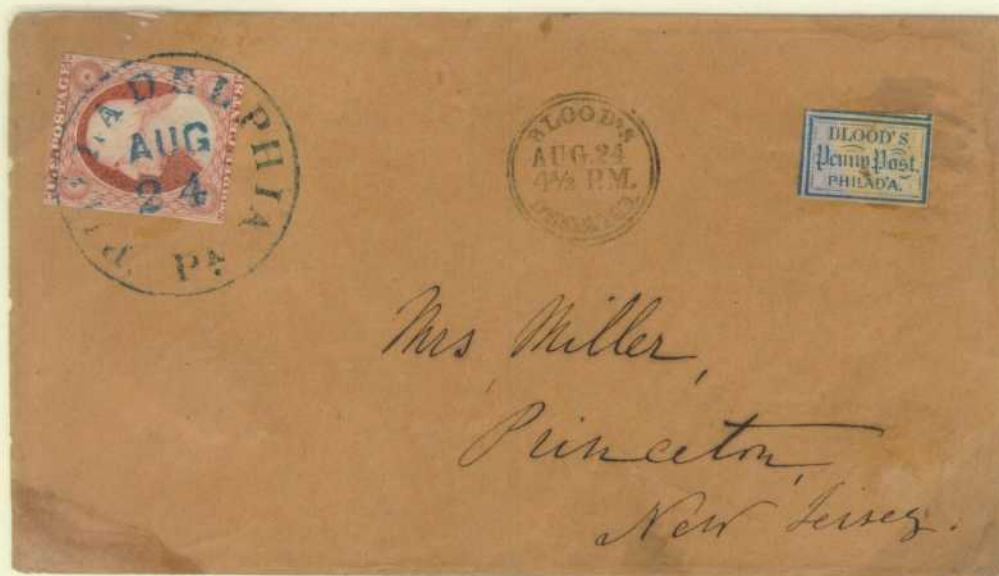 U.S. POSTAGE
PHILADELPHIA
AUG
24
Pa
BLOOD'S
AUG. 24
4½ P.M.
BLOOD'S
Penny Post.
PHILAD'A.
Mrs Miller,
Princeton,
New Jersey.